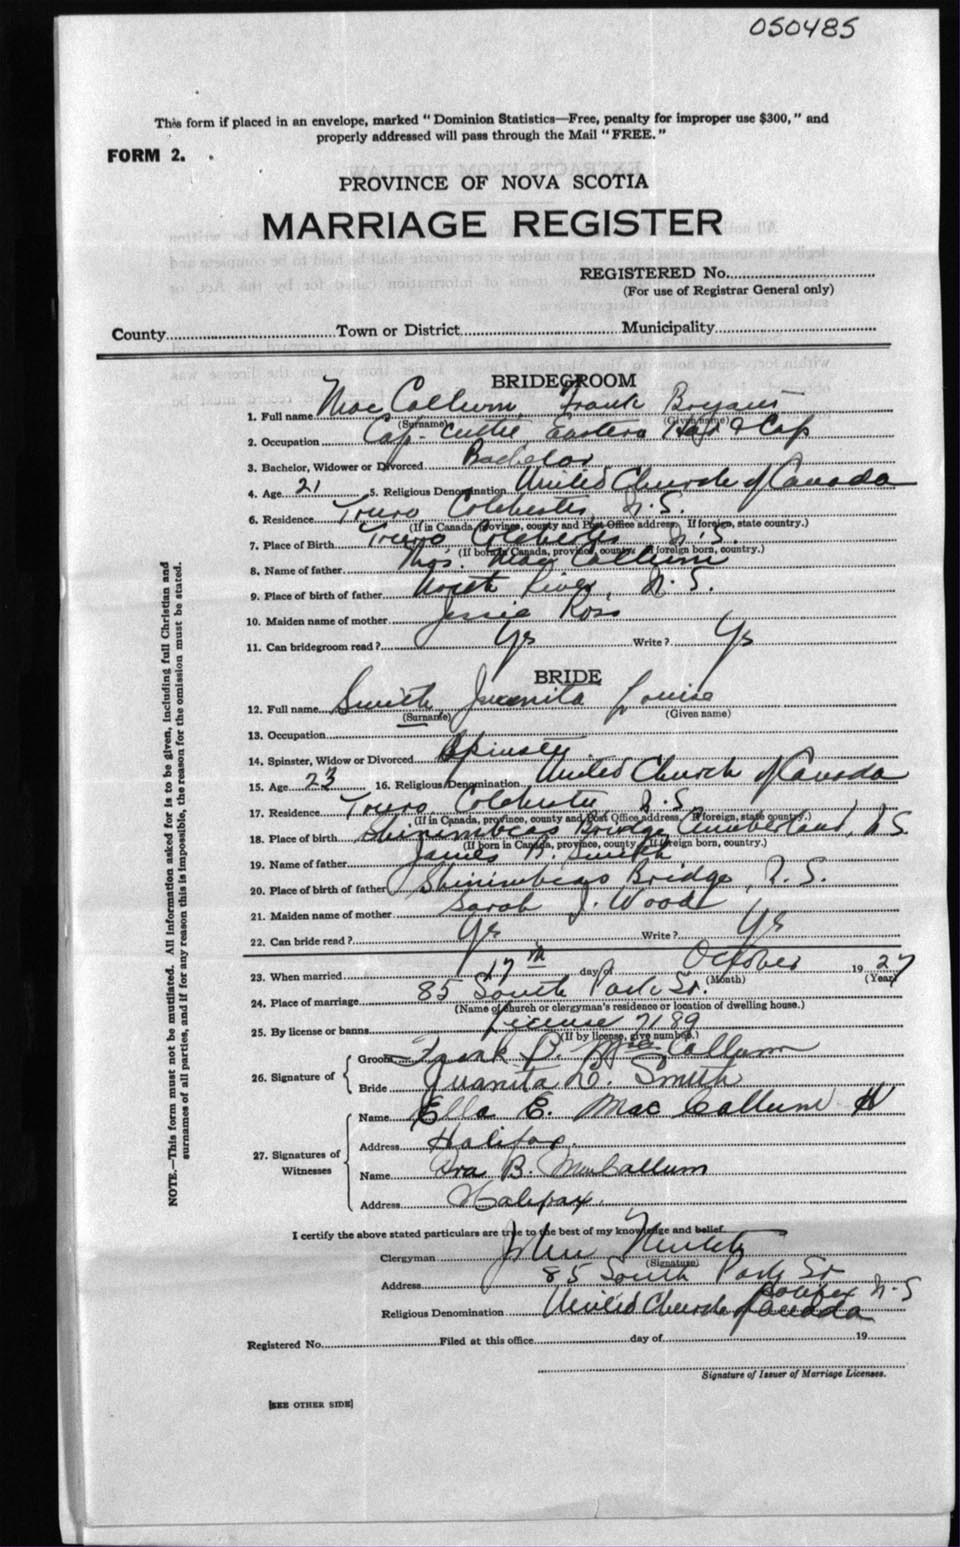 050485
This form if placed in an envelope, marked "Dominion Statistics—Free, penalty for improper use $300," and
properly addressed will pass through the Mail "FREE."
FORM 2.
PROVINCE OF NOVA SCOTIA
MARRIAGE REGISTER
REGISTERED No.
(For use of Registrar General only)
County Town or District Municipality
BRIDEGROOM
1. Full name MacCallum, Frank Bryant
(Surname) (Given name)
2. Occupation Cap-Cutter Eastern Hat & Cap
3. Bachelor, Widower or Divorced Bachelor
4. Age 21 5. Religious Denomination United Church of Canada
6. Residence Truro, Colchester, N.S.
(If in Canada, province, county and Post Office address. If foreign, state country.)
7. Place of Birth Truro Colchester N.S.
(If born in Canada, province, county; if foreign born, country.)
8. Name of father Thos. MacCallum
9. Place of birth of father North River, N.S.
10. Maiden name of mother Jessie Ross
11. Can bridegroom read? Yes Write? Yes
BRIDE
12. Full name Smith, Juanita Louise
(Surname) (Given name)
13. Occupation
14. Spinster, Widow or Divorced Spinster
15. Age 23 16. Religious Denomination United Church of Canada
17. Residence Truro, Colchester, N.S.
(If in Canada, province, county and Post Office address. If foreign, state country.)
18. Place of birth Shinimicas Bridge, Cumberland, N.S.
(If born in Canada, province, county; If foreign born, country.)
19. Name of father James Smith
20. Place of birth of father Shinimicas Bridge, N.S.
21. Maiden name of mother Sarah J. Wood
22. Can bride read? Yes Write? Yes
23. When married 17th day of October 1927
(Month) (Year)
24. Place of marriage 85 South Park St.
(Name of church or clergyman's residence or location of dwelling house.)
25. By license or banns License 7189
(If by license, give number.)
26. Signature of Groom Frank B. MacCallum
Bride Juanita L. Smith
27. Signatures of Witnesses
Name Ella E. MacCallum
Address Halifax.
Name Ira B. MacCallum
Address Halifax.
I certify the above stated particulars are true to the best of my knowledge and belief.
Clergyman John
(Signature)
Address 85 South Park St
Halifax N.S
Religious Denomination United Church of Canada
Registered No. Filed at this office day of 19
Signature of Issuer of Marriage Licenses.
[SEE OTHER SIDE]
NOTE.—This form must not be mutilated. All information asked for is to be given, including full Christian and
surnames of all parties, and if for any reason this is impossible, the reason for the omission must be stated.